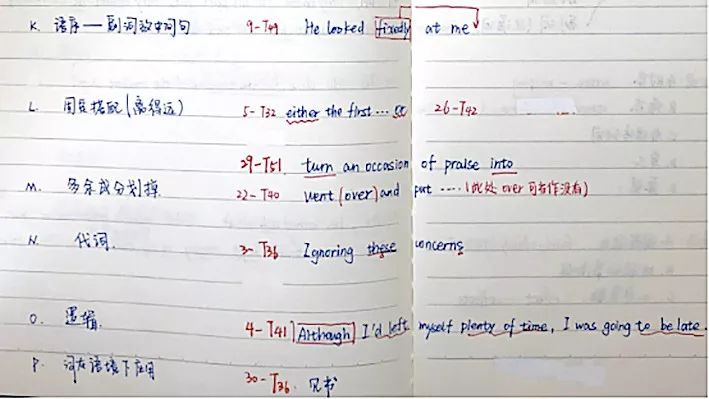 K. 语序—副词放中间句 9-T49 He looked fixedly at me
L. 固定搭配(离得远) 5-T32 either the first … or 26-T42
29-T51. turn an occasion of praise into
M. 多余成分划掉 22-T40 went (over) and put …. (此处 over 可当作没有)
N. 代词. 3-T36 Ignoring these concerns
O. 逻辑. 4-T41 Although I'd left myself plenty of time, I was going to be late.
P. 词在语境下应用 30-T36. 见书